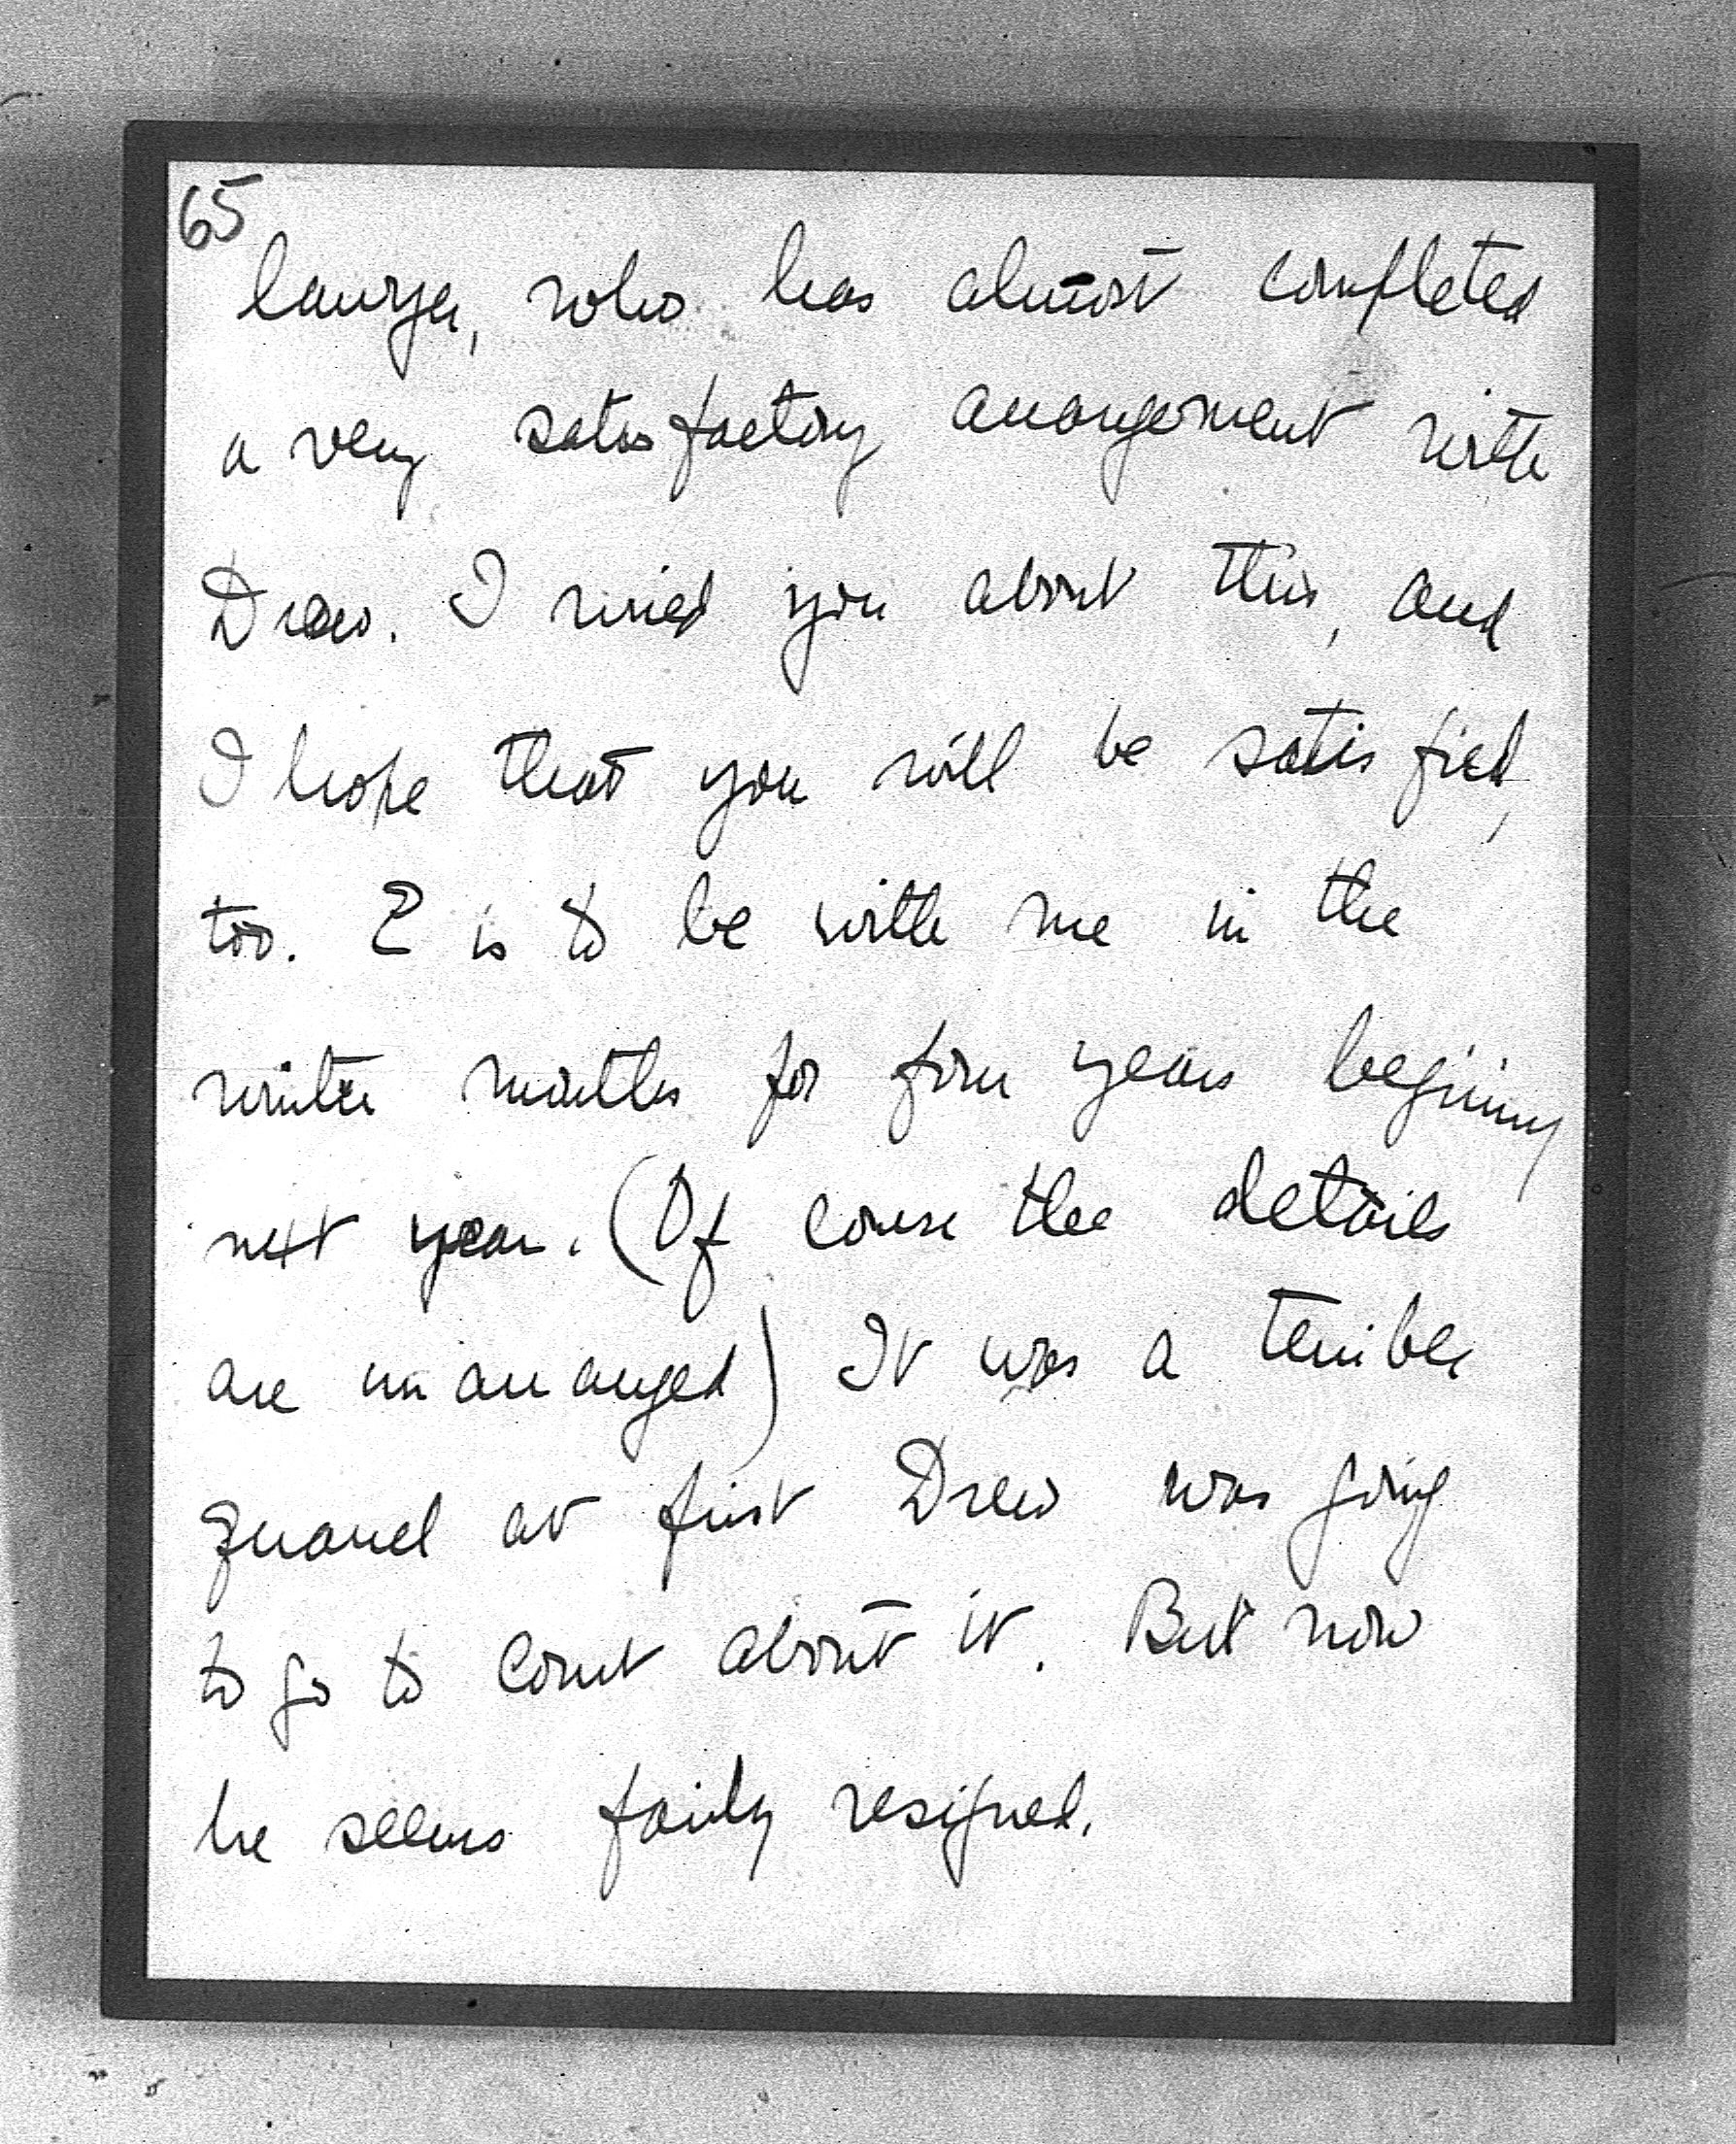 65
lawyer, who has almost completed
a very satisfactory arrangement with
Drew. I wired you about this, and
I hope that you will be satisfied,
too. E is to be with me in the
winter months for four years begining
next year. (Of course the details
are unarranged) It was a terrible
quarrel at first Drew was going
to go to Court about it. But now
he seems fairly resigned.